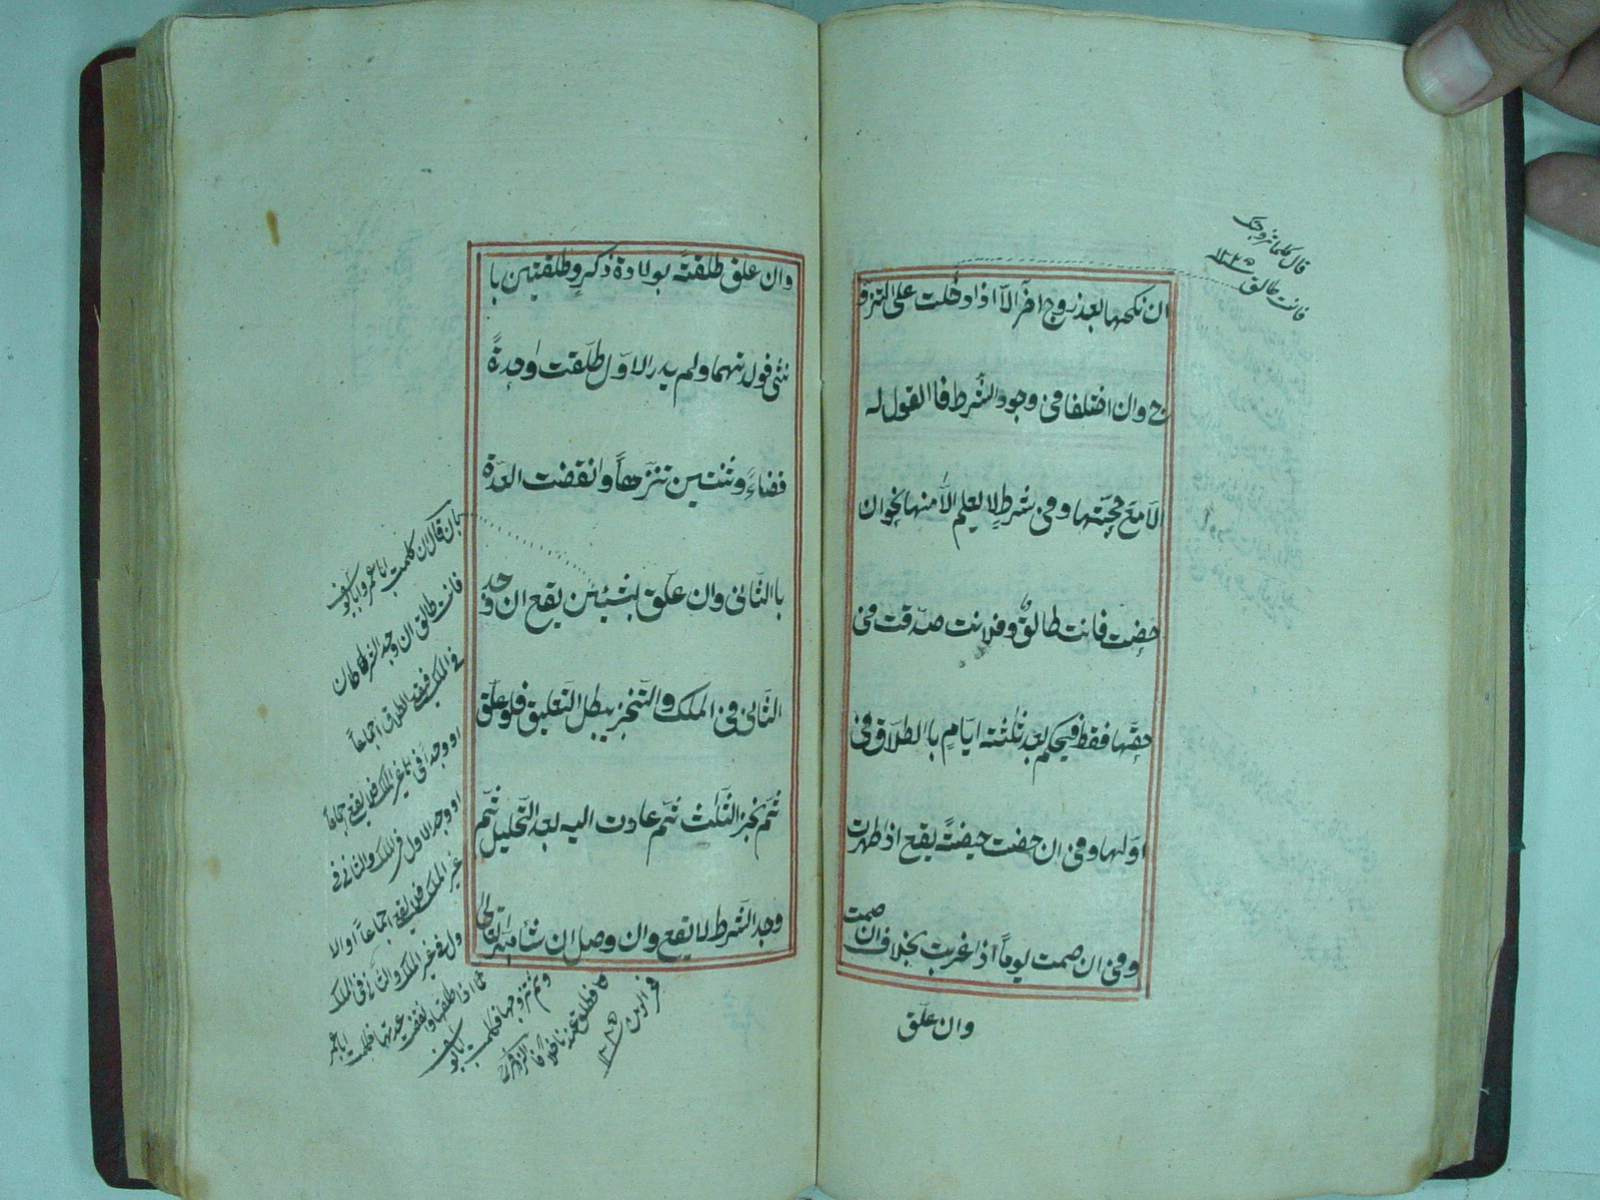 قال كلما تزوجتك
فانت طالق ١٢ ه‍
ان نكحها بعد زوج آخر الّا اذا دخلت على التزو
ج وان اختلفا فى وجود الشّرط فا القول له
الّا مع حجّتها وفى شرطٍ لا يعلم الّا منها نحو ان
حضتِ فانت طالقٌ وفلانت صدّقت فى
حقّها فقط فيحكم بعد ثلثته ايّامٍ با الطلاق فى
اوّلها وفى ان حضت حيضتً يقع اذ طهرت
وفى ان صمت يوماً اذا غربت بخلاف ان صمت
وان علّق
وان علق طلقتً بولادة ذكرٍ وطلقتين با
نثى فولدتهما ولم يدر الاوّل طلّقت واحدةً
قضاءً وثنتين تنزّهاً وانقضت العدّة
با الثّانى وان علّق بشيئين يقع ان وجد
الثّانى فى الملك والتّنجيز يبطل التّعليق فلو علّق
ثمّ نجز الثّلث ثمّ عادت اليه بعد التّحليل ثمّ
وجد الشّرط لا يقع وان وصل ان شاء الله تعالى
بان قال ان كلمت ابا عمرو وابا يوسف
فانت طالق ان وجد الشرطان
فى الملك فيقع الطلاق اجماعاً
او وجدا فى غير الملك فلا يقع اجماعاً
او وجد الاول فى الملك والثانى فى
غير الملك فلا يقع اجماعاً او الا
ول فى غير الملك والثانى فى الملك
كما اذا طلقها وانقضت عدتها فكلمت ابا عمر
وثم تزوجها فكلمت ابا يوسف
فطلق عندنا خلافاً لزفر
فخر الدين ١٢ ه‍